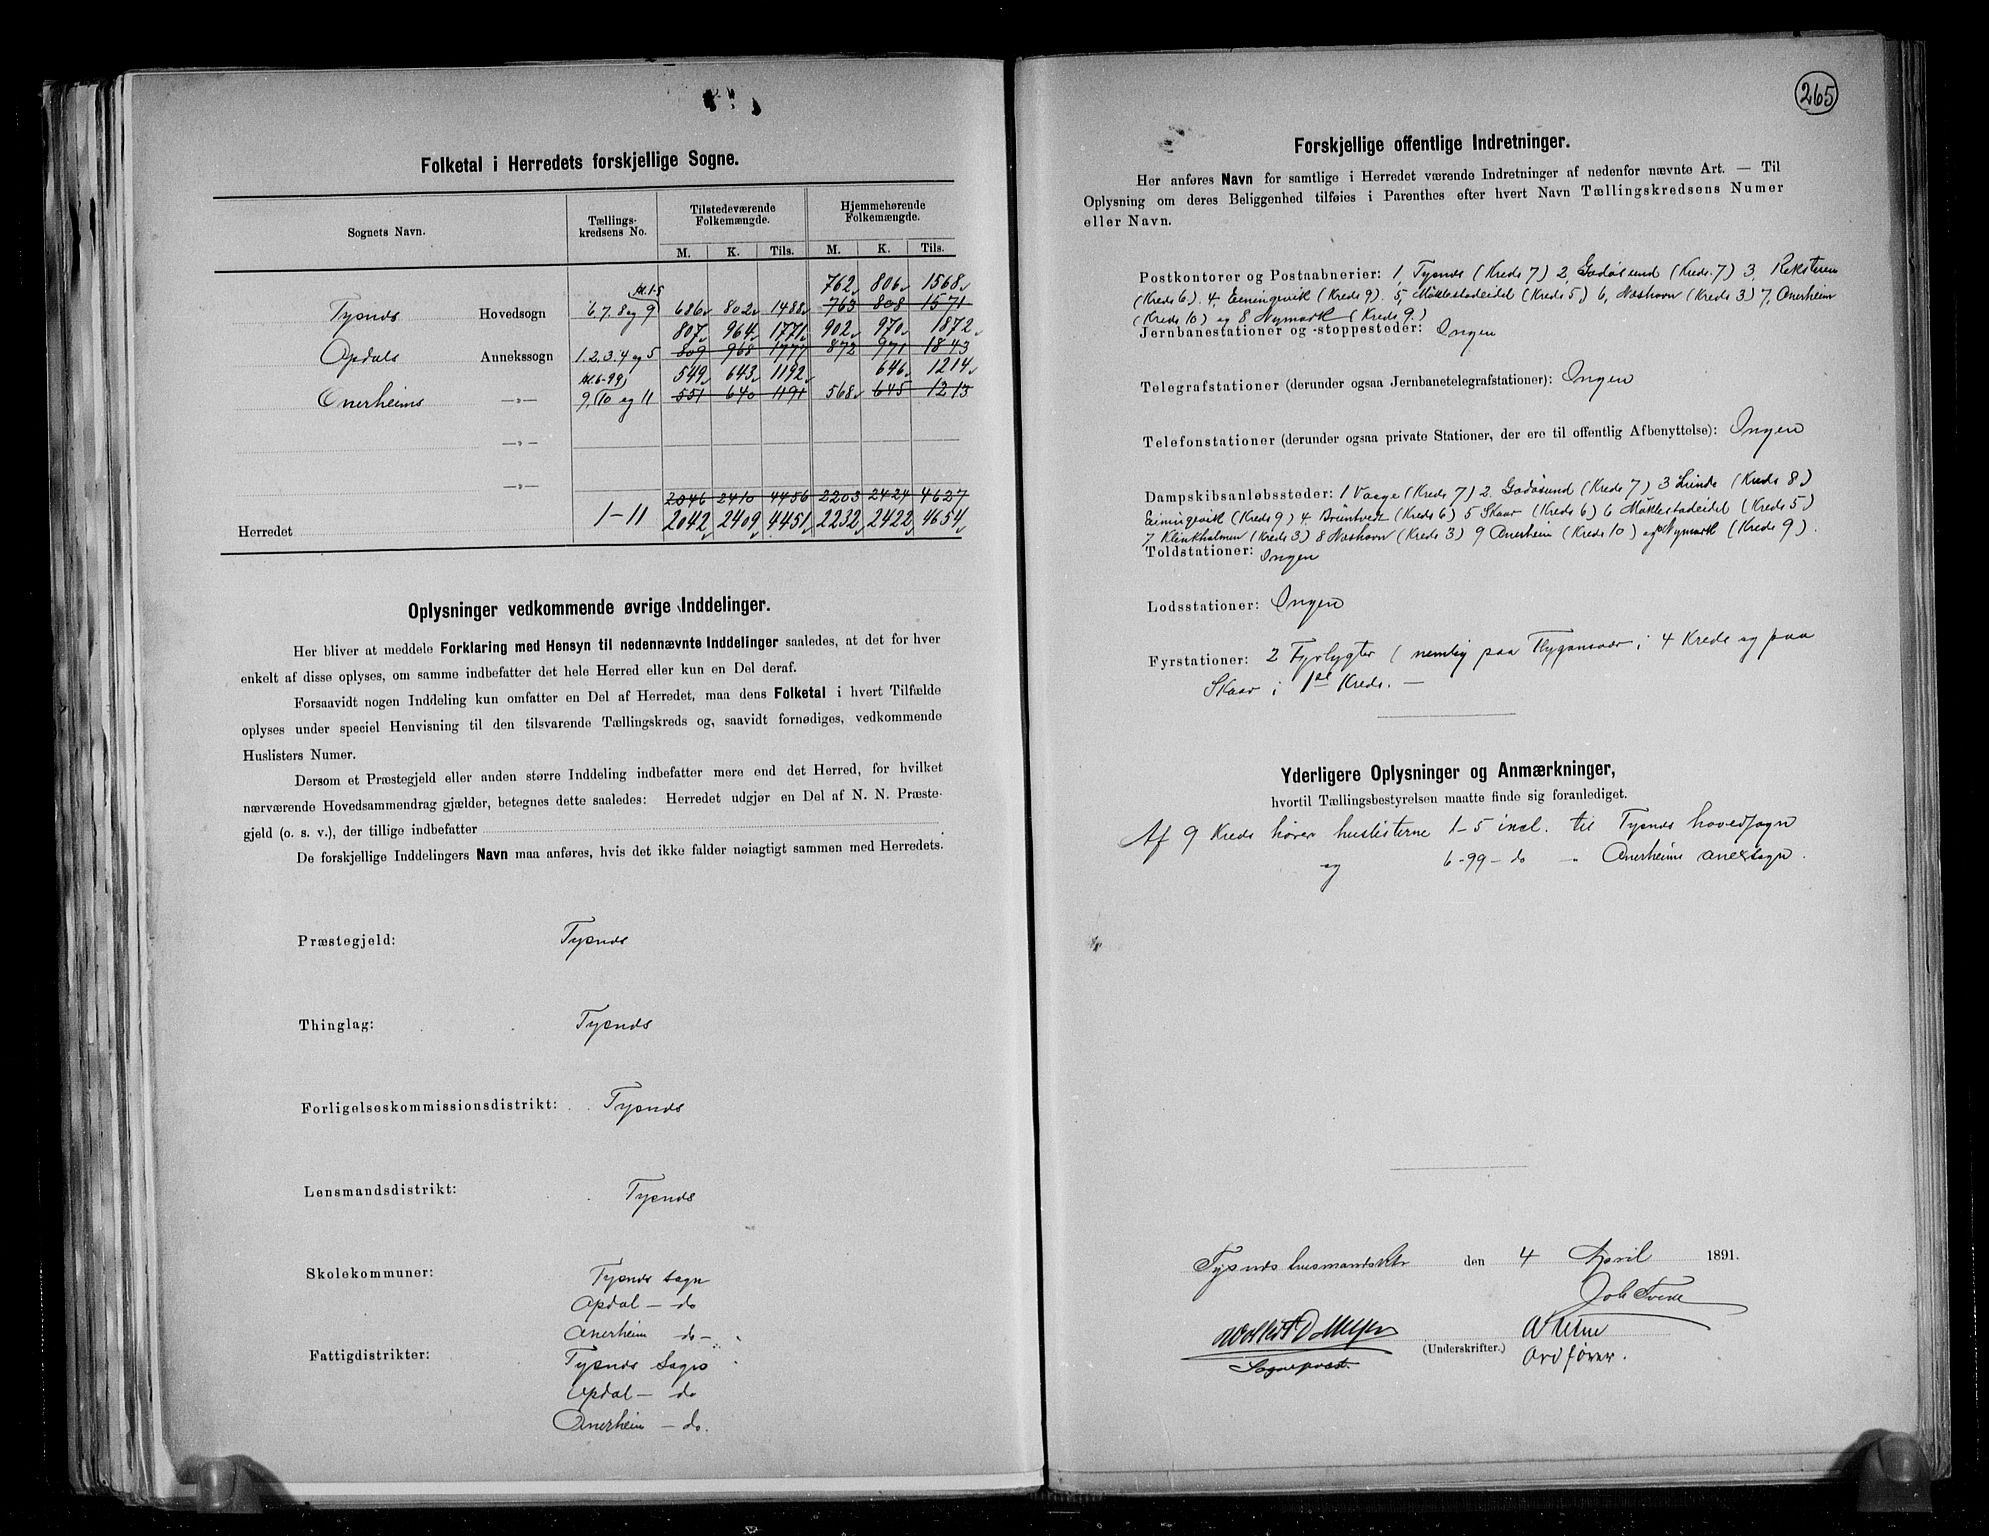 Folketal i Herredets forskjellige Sogne.
Sognets Navn.
Tællings-
kredsens No.
Tilstedeværende
Folkemængde.
Hjemmehørende
Folkemængde.
M. K. Tils. M. K. Tils.
762 806 1568
Hl. 1-5
Tysnes Hovedsogn 6, 7, 8 og 9 686 802 1488 763 808 1571
807 964 1771 902 970 1872
Opdals Annekssogn 1, 2, 3, 4 og 5 809 968 1777 872 971 1843
Hl. 6-99 549 643 1192 646 1214
Onerheims —„— 9, 10 og 11 551 640 1191 568 645 1213
—„—
—„—
2046 2410 4456 2203 2424 4627
Herredet 1-11 2042 2409 4451 2232 2422 4654
Oplysninger vedkommende øvrige Inddelinger.
Her bliver at meddele Forklaring med Hensyn til nedennævnte Inddelinger saaledes, at det for hver
enkelt af disse oplyses, om samme indbefatter det hele Herred eller kun en Del deraf.
Forsaavidt nogen Inddeling kun omfatter en Del af Herredet, maa dens Folketal i hvert Tilfælde
oplyses under speciel Henvisning til den tilsvarende Tællingskreds og, saavidt fornødiges, vedkommende
Huslisters Numer.
Dersom et Præstegjeld eller anden større Inddeling indbefatter mere end det Herred, for hvilket
nærværende Hovedsammendrag gjælder, betegnes dette saaledes: Herredet udgjør en Del af N. N. Præste-
gjeld (o. s. v.), der tillige indbefatter
De forskjellige Inddelingers Navn maa anføres, hvis det ikke falder nøiagtigt sammen med Herredets.
Præstegjeld: Tysnes
Thinglag: Tysnes
Forligelseskommissionsdistrikt: Tysnes
Lensmandsdistrikt: Tysnes
Skolekommuner: Tysnes sogn
Opdal — do
Onerheim — do —
Fattigdistrikter: Tysnes Sogn
Opdal — do
Onerheim — do.
265
Forskjellige offentlige Indretninger.
Her anføres Navn for samtlige i Herredet værende Indretninger af nedenfor nævnte Art. — Til
Oplysning om deres Beliggenhed tilføies i Parenthes efter hvert Navn Tællingskredsens Numer
eller Navn.
Postkontorer og Postaabnerier: 1, Tysnes (Kreds 7) 2, Godøsund (Kreds 7) 3, Reksteren
(Kreds 6). 4, Eeningevik (Kreds 9). 5, Møklestadeidet (Kreds 5) 6, Næshavn (Kreds 3) 7, Onerheim
(Kreds 10) og 8 Nymark (Kreds 9.)
Jernbanestationer og -stoppesteder: Ingen
Telegrafstationer (derunder ogsaa Jernbanetelegrafstationer): Ingen
Telefonstationer (derunder ogsaa private Stationer, der ere til offentlig Afbenyttelse): Ingen
Dampskibsanløbssteder: 1 Vaage (Kreds 7) 2. Godøsund (Kreds 7) 3 Lunde (Kreds 8)
Eeningevik (Kreds 9) 4. Bruntvedt (Kreds 6) 5 Skaar (Kreds 6) 6 Møklestadeidet (Kreds 5)
7 Klinkholmen (Kreds 3) 8 Næshavn (Kreds 3) 9 Onerheim (Kreds 10) og Nymark (Kreds 9).
Toldstationer: Ingen
Lodsstationer: Ingen
Fyrstationer: 2 Fyrlygter (nemlig paa i 4 Kreds og paa
Skaar i 1ste Kreds. —
Yderligere Oplysninger og Anmærkninger,
hvortil Tællingsbestyrelsen maatte finde sig foranlediget.
Af 9 Kreds hører huslisterne 1-5 incl. til Tysnes hovedsogn
og 6-99 - do „ Onerheims anexsogn.
Tysnes den 4 April 1891.
(Underskrifter.)
Sogneprest.
Ordfører.